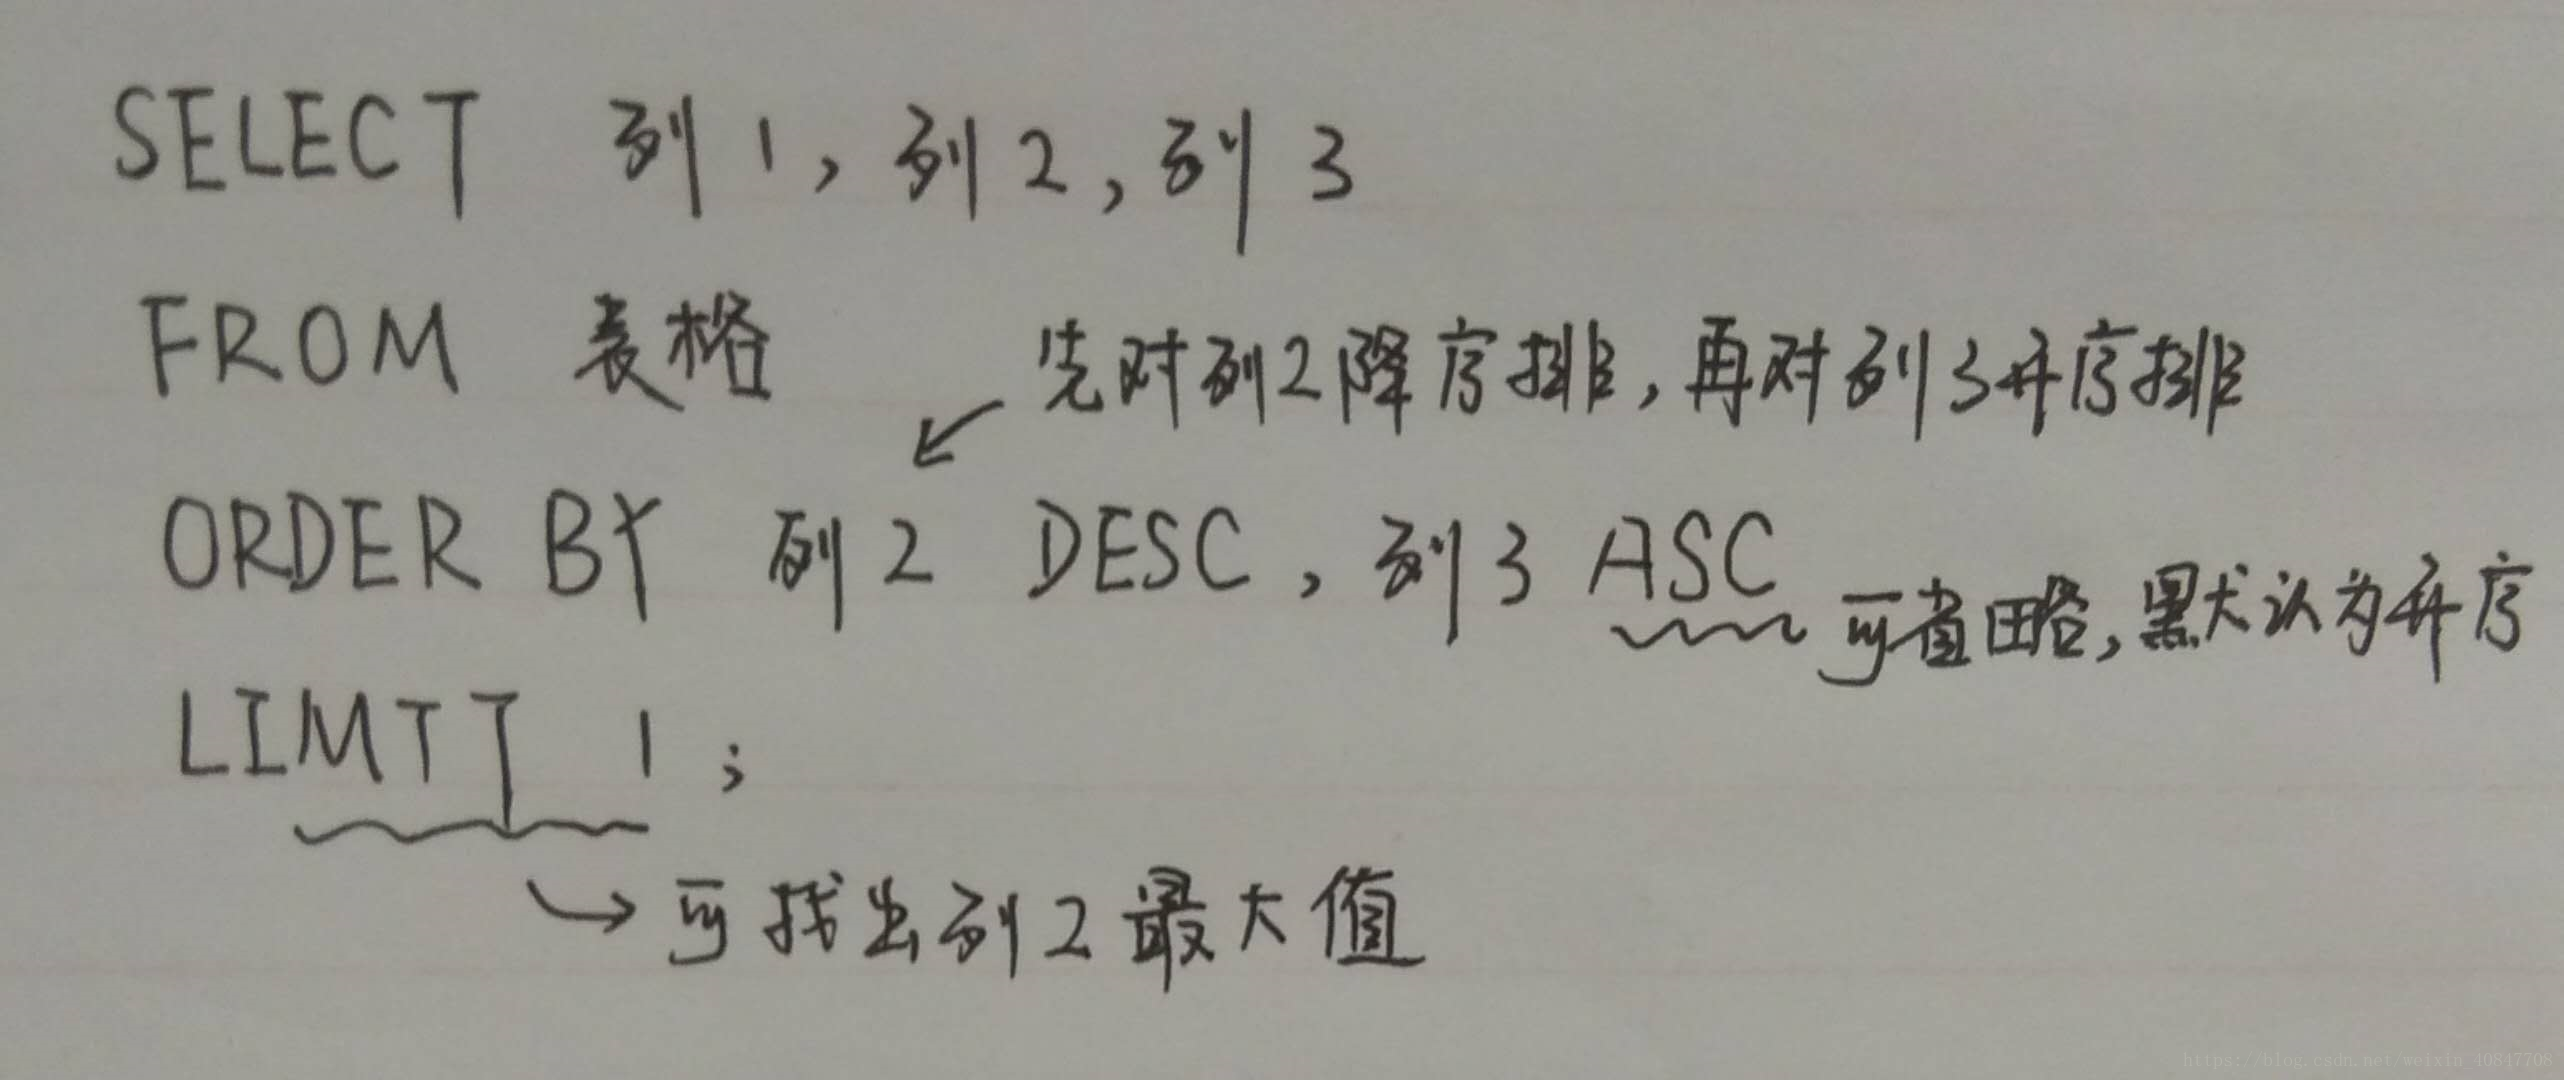 SELECT 列1, 列2, 列3
FROM 表格
先对列2降序排, 再对列3升序排
ORDER BY 列2 DESC, 列3 ASC
可省略, 默认为升序
LIMIT 1;
可找出列2最大值
https://blog.csdn.net/weixin_40847708